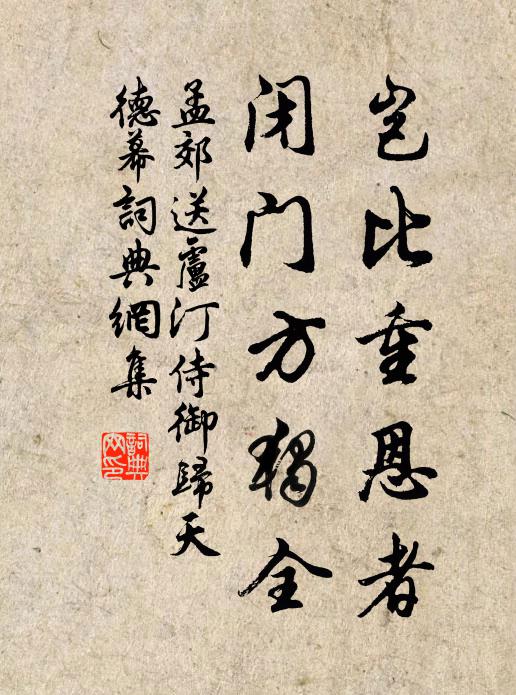 岂比重恩者
闭门方独全
孟郊送盧汀侍御歸天
德幕詞典網集
詞典网印